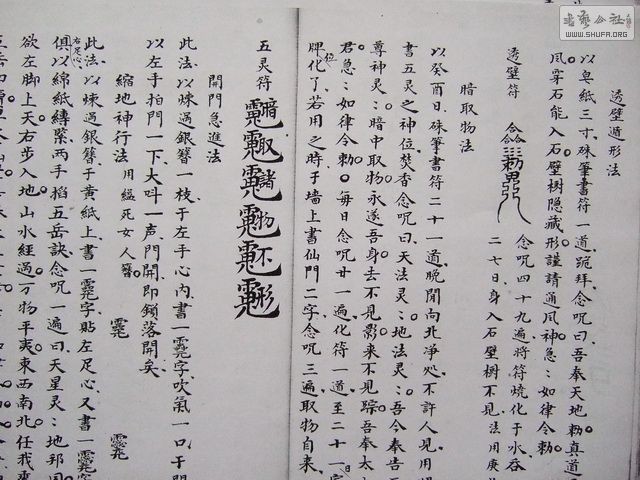 書藝公社
WWW.SHUFA.ORG
透壁遁形法
以皂紙三寸硃筆書符一道跪拜念咒曰吾奉天地勅真道
風穿石能入石壁樹隐藏形謹請通風神急:如律令勅
透壁符
念咒四十九遍將符燒化于水吞
二七日身入石壁樹不見法用庚
暗取物法
以癸酉日硃筆書符二十一道晚間向北凈処不許人見用
書五灵之神位焚香念咒曰天法灵:地法灵:吾今奉告
尊神灵:暗中取物永遂吾身去不見影来不見踪吾奉太
君急:如律令勅每日念咒廿一遍化符一道至二十一日
牌位化了若用之時于墙上書仙門二字念咒三遍取物自来
五灵符
暗取諸物不形
開門急進法
此法以煉過銀簪一枝于左手心內書一字吹氣一口于門
以左手拍門一下大叫一声門開即鎖落開矣
縮地神行法
用縊死女人簪
此法以煉過銀簪于黄紙上書一字貼左足心又書一字
右足心
俱以綿紙縛緊两手掐五岳訣念咒一遍曰天星灵:地
欲左脚上天右步入地山水經過万物平夷東西南北任我